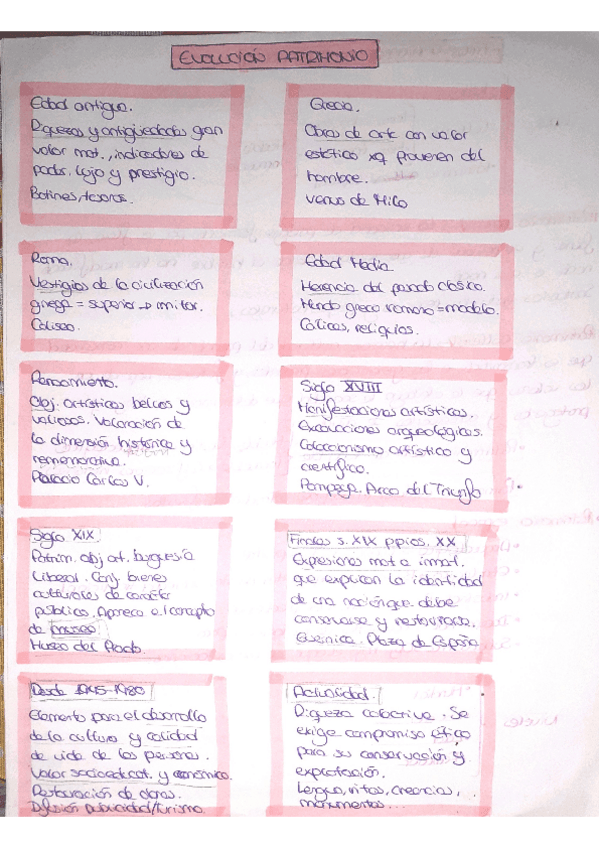 EVOLUCIÓN PATRIMONIO
Edad antigua.
Riquezas y antigüedades gran
valor mat., indicadores de
poder, lujo y prestigio.
Botines, tesoros.
Grecia.
Obras de arte con valor
estético xq provienen del
hombre.
Venus de Milo
Roma.
Vestigios de la civilización
griega = superior → imitar.
Coliseo.
Edad Media
Herencia del pasado clásico.
Mundo greco romano = modelo.
Cálices, reliquias.
Renacimiento.
Obj. artísticos bellos y
valiosos. Valoración de
la dimensión histórica y
rememorativa.
Palacio Carlos V.
Siglo XVIII
Manifestaciones artísticas.
Excavaciones arqueológicas.
Coleccionismo artístico y
científico.
Pompeya, Arco del Triunfo
Siglo XIX.
Patrim. obj art. burguesía
Liberal. Conj bienes
culturales de carácter
público. Aparece el concepto
de museo
Museo del Prado.
Finales s. XIX ppios. XX
Expresiones mat e inmat.
que explican la identidad
de una nación que debe
conservarse y restaurarse.
Guernica. Plaza de España
Desde 1945-1980
Elemento para el desarrollo
de la cultura y calidad
de vida de las personas.
Valor socioeducat. y económico.
Restauración de obras.
Difusión publicidad/turismo.
Actualidad.
Riqueza colectiva. Se
exige compromiso ético
para su conservación y
explotación.
Lengua, ritos, creencias,
monumentos...